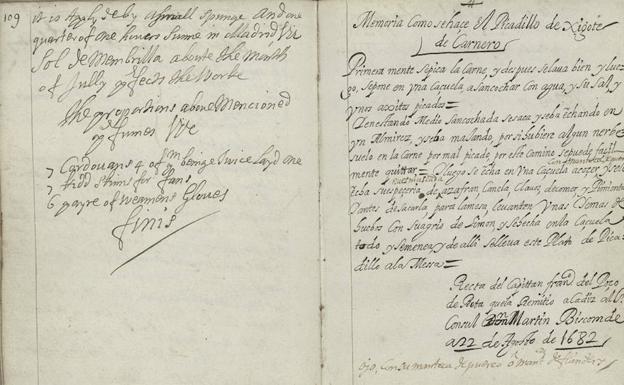 109
it is Apply'de by A small Spunge And one
quarter of one houers Sume in Madrid
Sol de Membrilla aboute the Month
of Jully
the proportions above Mencioned
7 Cordouans 4 of being twice layd one
7 Kidd Skinns for fans
6 payre of weamons Gloves
finis
Memoria Como sehaçe El Picadillo de Xigote
de Carnero
Primera mente Sepica la Carne, y despues selaua bien y lue
go, sepone en vna Caçuela a sancochar Con agua, y su sal y
vnos axitos picados=
Y enestando Medio Sancochada Sesaca y seba echando en
vn Almirez, y seba maxando, por si Vbiere algun nerbe
suelo en la Carne por mal picado, por este camino se puede façil
mente quittar= Y luego se echa en Vna Caçuela
echa su espeçeria, de azafran Canela, Clauo, decomer y Pimienta
Y antes de sacarla para lamesa, leuanton Vnas Yemas de
huebo con su agrio de Limon y sehecha en la Caçuela
todo, y semenea y de alli selleua este Plato de Pica
dillo ala Messa=
Recta del Capittan fran.co del Pozo
de Rota que la Remitio a Cadiz al
Consul Don Martin Biscomde
a 22 de Agosto de 1682
ojo, Con su manteca de puerco o mant.a de flandes